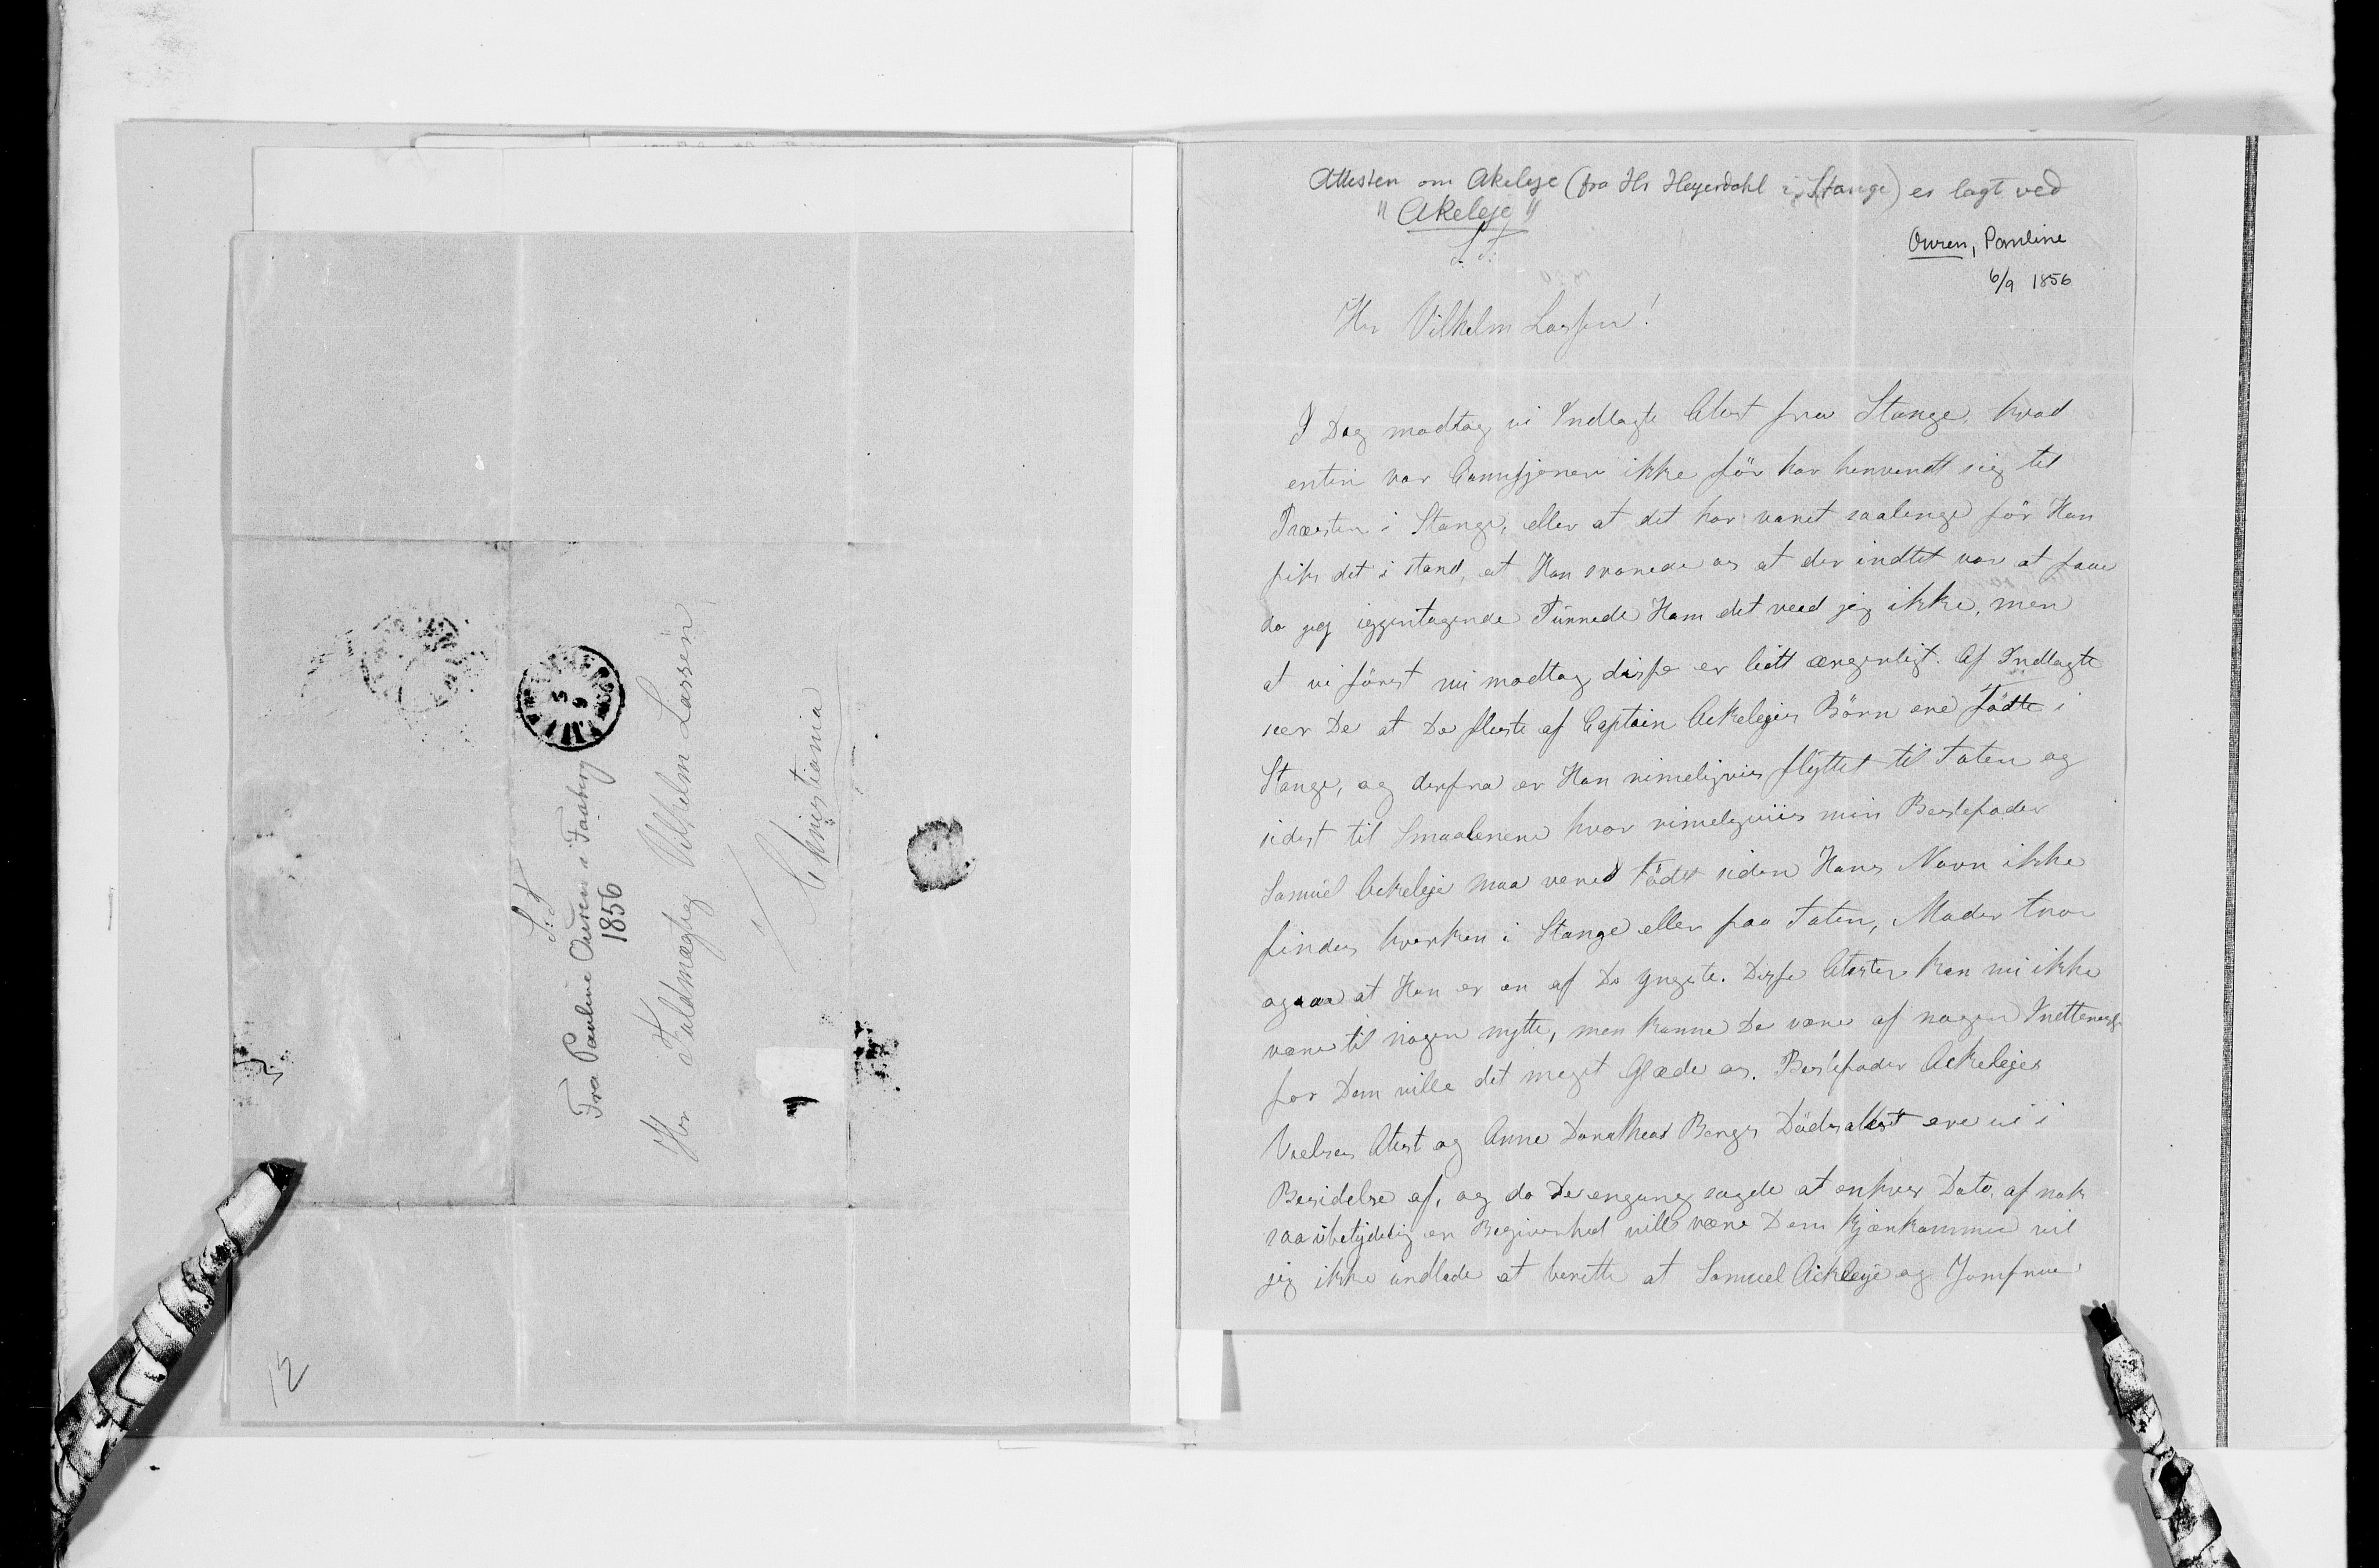 S. T.
Fra Pauline Ouren i Faaberg
1856
Hr Fuldmægtig Vilhelm Lassen
Christiania
5
9
12
Attesten om Akeleje (fra Hr Heyerdahl i Stange) er lagt ved
"Akeleje"
S. T.
Owren, Pauline
6/9 1856
Her Vilhelm Lassen!
I Dag modtog vi Indlagte Atest fra Stange, hvad
enten var Comisjonær ikke för har henvendt sig til
Præsten i Stange, eller at det har varet saalenge för Han
fik det i stand, at Han svarede os at der indtet var at faae
da jeg iggentagende Purrede Ham det veed jeg ikke, men
at vi först nu modtog disse er lidt ærgerligt. Af Indlagte
seer De at De fleste af Captain Ackelejes Börn ere födte i
Stange, og derfra er Han rimeligvis flyttet til Toten og
sidst til Smaalenene hvor rimeligviis min Bestefader
Samuel Ackeleje maa være födt siden Hans Navn ikke
findes hverken i Stange eller paa Toten, Moder troer
ogsaa at Han er en af De yngste. Disse Atester kan nu ikke
være til nogen nytte, men kunne De være af nogen
for Dem ville det meget Glæde os. Bestefader Ackelejes
Vielses Atest og Anne Dorotheas Bergs Dödsattest ere vi i
Besidelse af, og da De engang sagde at enhver Dato af nok
saa ubetydelig en Begivenhed ville være Dem kjærkommen vil
jeg ikke undlade at berette at Samuel Ackleye og Jomfrue